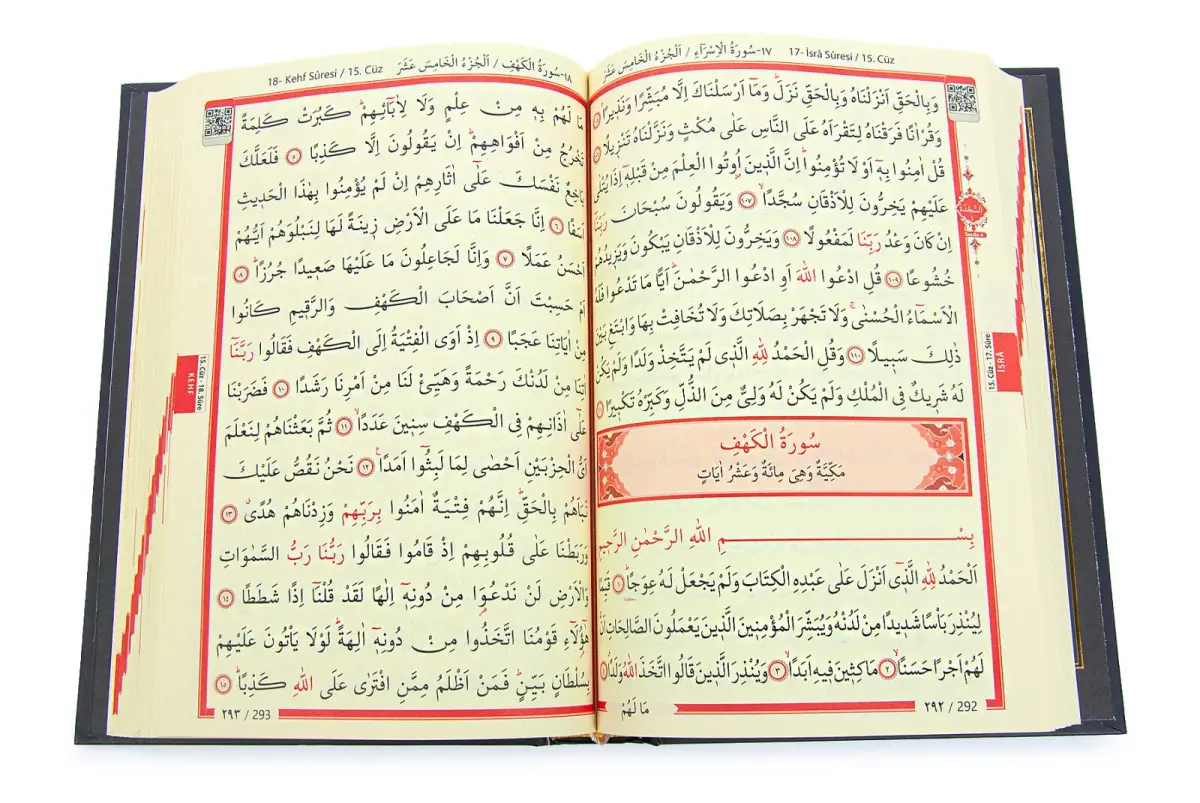 ١٧-سُورَةُ الْاِسْرَاءِ / اَلْجُزْءُ الْخَامِسَ عَشَرَ 17- İsrâ Sûresi / 15. Cüz
وَبِالْحَقِّ اَنْزَلْنَاهُ وَبِالْحَقِّ نَزَلَۜ وَمَٓا اَرْسَلْنَاكَ اِلَّا مُبَشِّرًا وَنَذ۪يرًاۢ
وَقُرْاٰنًا فَرَقْنَاهُ لِتَقْرَاَهُ عَلَى النَّاسِ عَلٰى مُكْثٍ وَنَزَّلْنَاهُ تَنْز۪يلًا
قُلْ اٰمِنُوا بِه۪ٓ اَوْ لَا تُؤْمِنُواۜ اِنَّ الَّذ۪ينَ اُو۫تُوا الْعِلْمَ مِنْ قَبْلِه۪ٓ اِذَا يُتْلٰى
عَلَيْهِمْ يَخِرُّونَ لِلْاَذْقَانِ سُجَّدًاۙ ﴿١٠٧﴾ وَيَقُولُونَ سُبْحَانَ رَبِّنَٓا
اِنْ كَانَ وَعْدُ رَبِّنَا لَمَفْعُولًا ﴿١٠٨﴾ وَيَخِرُّونَ لِلْاَذْقَانِ يَبْكُونَ وَيَز۪يدُهُمْ
خُشُوعًا ﴿١٠٩﴾ قُلِ ادْعُوا اللّٰهَ اَوِ ادْعُوا الرَّحْمٰنَۜ اَيًّا مَا تَدْعُوا فَلَهُ
الْاَسْمَٓاءُ الْحُسْنٰىۚ وَلَا تَجْهَرْ بِصَلَاتِكَ وَلَا تُخَافِتْ بِهَا وَابْتَغِ بَيْنَ
ذٰلِكَ سَب۪يلًا ﴿١١٠﴾ وَقُلِ الْحَمْدُ لِلّٰهِ الَّذ۪ي لَمْ يَتَّخِذْ وَلَدًا وَلَمْ يَكُنْ
لَهُ شَر۪يكٌ فِي الْمُلْكِ وَلَمْ يَكُنْ لَهُ وَلِيٌّ مِنَ الذُّلِّ وَكَبِّرْهُ تَكْب۪يرًا
سُورَةُ الْكَهْفِ
مَكِّيَّةٌ وَهِيَ مِائَةٌ وَعَشْرُ اٰيَاتٍ
بِسْمِ اللّٰهِ الرَّحْمٰنِ الرَّح۪يمِ
اَلْحَمْدُ لِلّٰهِ الَّذ۪ٓي اَنْزَلَ عَلٰى عَبْدِهِ الْكِتَابَ وَلَمْ يَجْعَلْ لَهُ عِوَجًاۜ ﴿١﴾ قَيِّمًا
لِيُنْذِرَ بَاْسًا شَد۪يدًا مِنْ لَدُنْهُ وَيُبَشِّرَ الْمُؤْمِن۪ينَ الَّذ۪ينَ يَعْمَلُونَ الصَّالِحَاتِ اَنَّ
لَهُمْ اَجْرًا حَسَنًاۙ ﴿٢﴾ مَاكِث۪ينَ ف۪يهِ اَبَدًاۙ ﴿٣﴾ وَيُنْذِرَ الَّذ۪ينَ قَالُوا اتَّخَذَ اللّٰهُ وَلَدًاۗ ﴿٤﴾
مَا لَهُمْ
٢٩٢ / 292
اَلسَّجْدَةُ
15. Cüz - 17. Sûre
İSRÂ
١٨-سُورَةُ الْكَهْفِ / اَلْجُزْءُ الْخَامِسَ عَشَرَ 18- Kehf Sûresi / 15. Cüz
مَا لَهُمْ بِه۪ مِنْ عِلْمٍ وَلَا لِاٰبَٓائِهِمْۜ كَبُرَتْ كَلِمَةً
تَخْرُجُ مِنْ اَفْوَاهِهِمْۜ اِنْ يَقُولُونَ اِلَّا كَذِبًا ﴿٥﴾ فَلَعَلَّكَ
بَاخِعٌ نَفْسَكَ عَلٰٓى اٰثَارِهِمْ اِنْ لَمْ يُؤْمِنُوا بِهٰذَا الْحَد۪يثِ
اَسَفًا ﴿٦﴾ اِنَّا جَعَلْنَا مَا عَلَى الْاَرْضِ ز۪ينَةً لَهَا لِنَبْلُوَهُمْ اَيُّهُمْ
اَحْسَنُ عَمَلًا ﴿٧﴾ وَاِنَّا لَجَاعِلُونَ مَا عَلَيْهَا صَع۪يدًا جُرُزًاۜ ﴿٨﴾
اَمْ حَسِبْتَ اَنَّ اَصْحَابَ الْكَهْفِ وَالرَّق۪يمِ كَانُوا
مِنْ اٰيَاتِنَا عَجَبًا ﴿٩﴾ اِذْ اَوَى الْفِتْيَةُ اِلَى الْكَهْفِ فَقَالُوا رَبَّنَٓا
اٰتِنَا مِنْ لَدُنْكَ رَحْمَةً وَهَيِّئْ لَنَا مِنْ اَمْرِنَا رَشَدًا ﴿١٠﴾ فَضَرَبْنَا
عَلٰٓى اٰذَانِهِمْ فِي الْكَهْفِ سِن۪ينَ عَدَدًاۙ ﴿١١﴾ ثُمَّ بَعَثْنَاهُمْ لِنَعْلَمَ
اَيُّ الْحِزْبَيْنِ اَحْصٰى لِمَا لَبِثُٓوا اَمَدًا۟ ﴿١٢﴾ نَحْنُ نَقُصُّ عَلَيْكَ
نَبَاَهُمْ بِالْحَقِّۜ اِنَّهُمْ فِتْيَةٌ اٰمَنُوا بِرَبِّهِمْ وَزِدْنَاهُمْ هُدًىۗ ﴿١٣﴾
وَرَبَطْنَا عَلٰى قُلُوبِهِمْ اِذْ قَامُوا فَقَالُوا رَبُّنَا رَبُّ السَّمٰوَاتِ
وَالْاَرْضِ لَنْ نَدْعُوَ۬ا مِنْ دُونِه۪ٓ اِلٰهًا لَقَدْ قُلْنَٓا اِذًا شَطَطًا ﴿١٤﴾
هٰٓؤُ۬لَٓاءِ قَوْمُنَا اتَّخَذُوا مِنْ دُونِه۪ٓ اٰلِهَةًۜ لَوْلَا يَاْتُونَ عَلَيْهِمْ
بِسُلْطَانٍ بَيِّنٍۜ فَمَنْ اَظْلَمُ مِمَّنِ افْتَرٰى عَلَى اللّٰهِ كَذِبًاۜ ﴿١٥﴾
٢٩٣ / 293
15. Cüz - 18. Sûre
KEHF